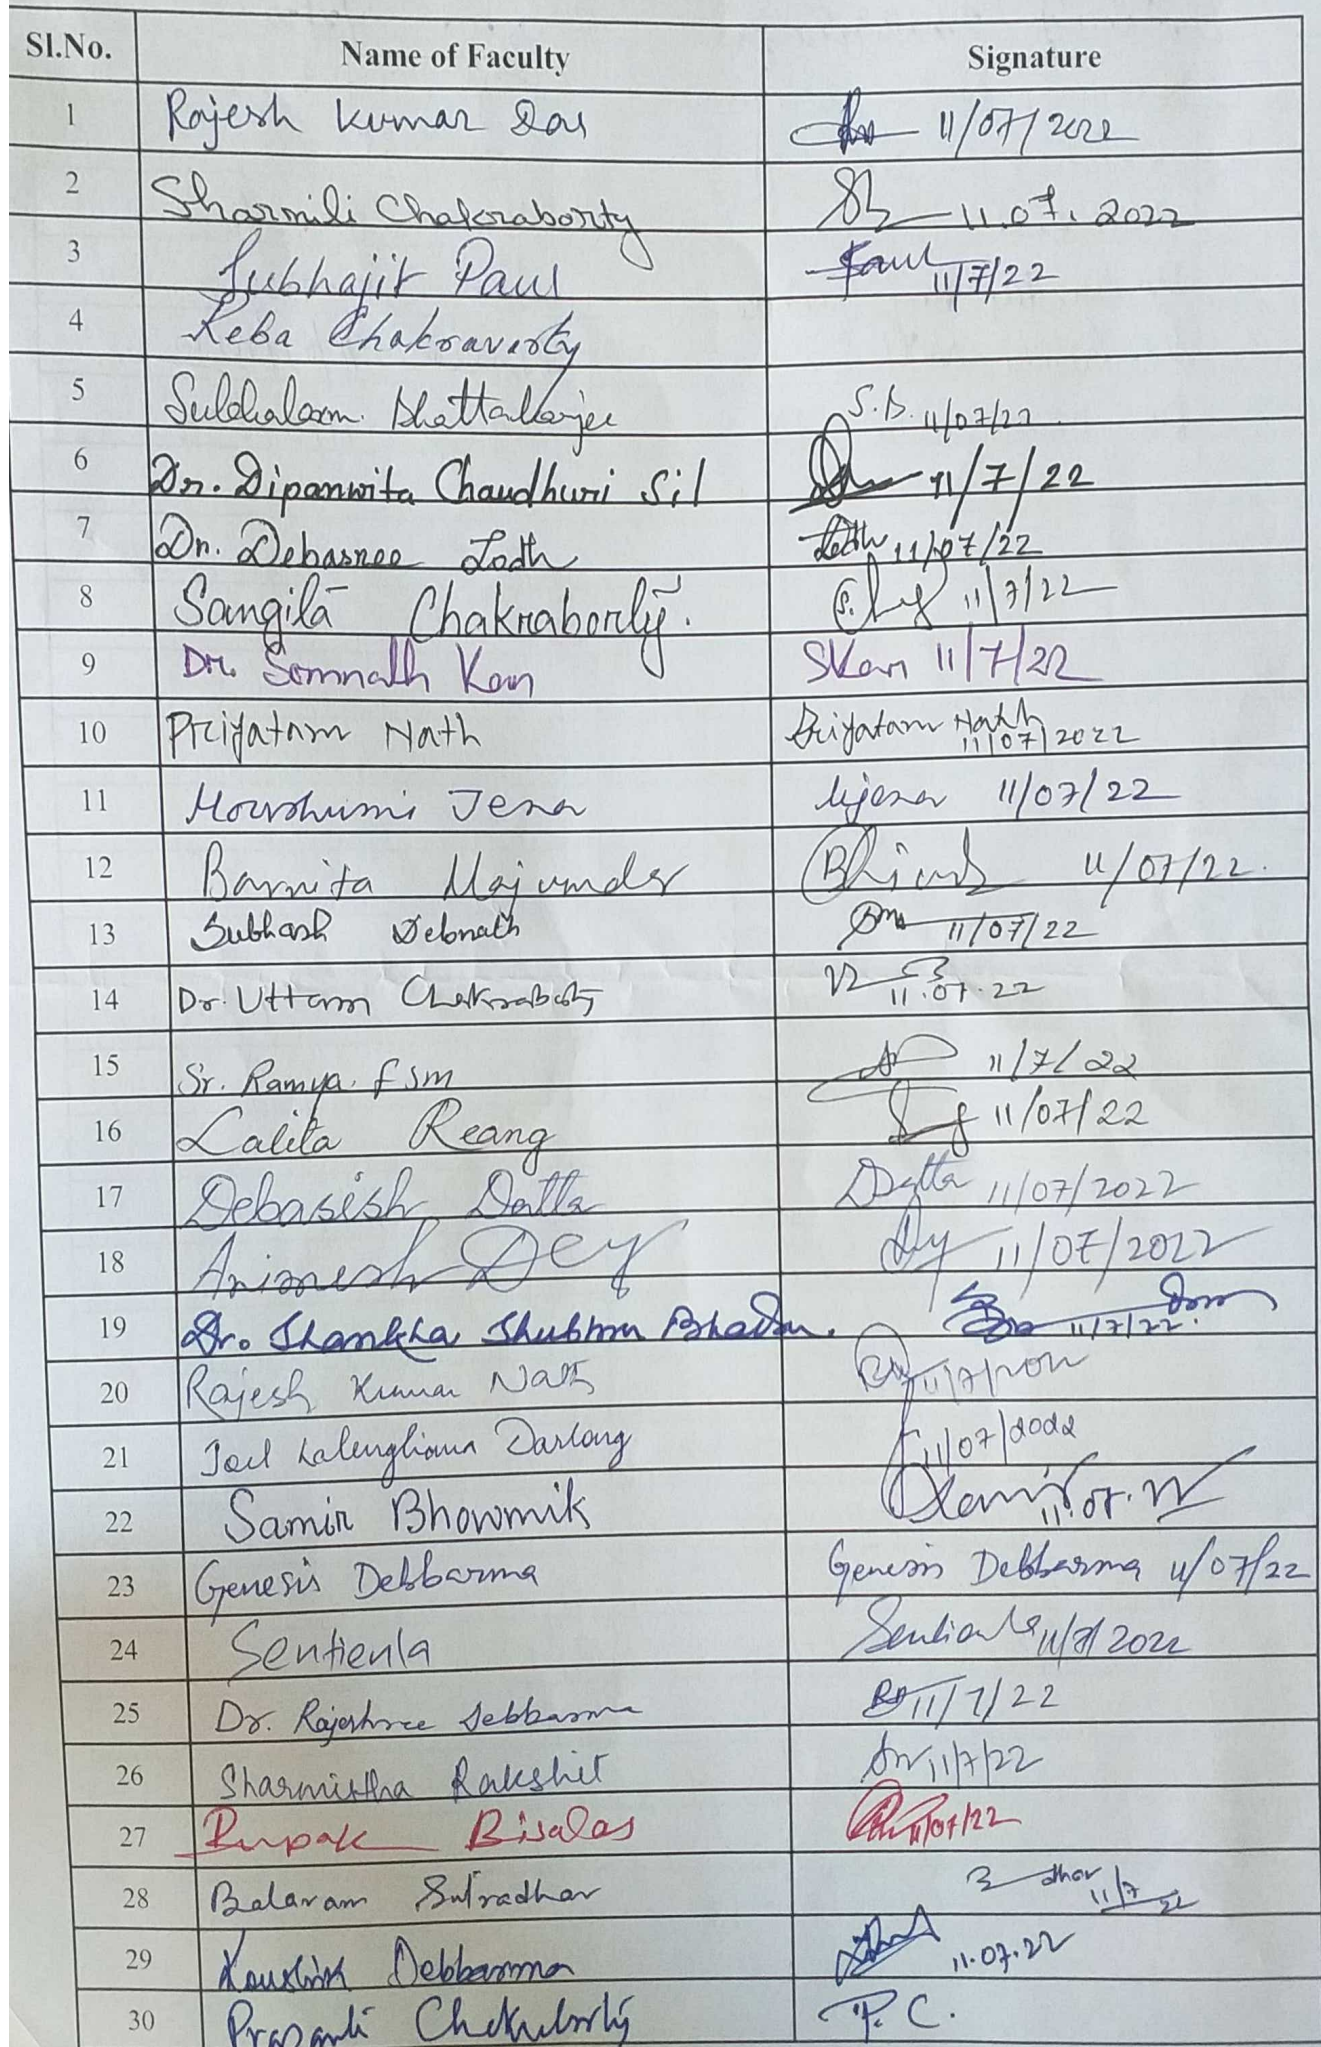 Sl.No. Name of Faculty Signature
1 Rajesh Kumar Das 11/07/2022
2 Sharmili Chakraborty 11.07.2022
3 Subhajit Paul Paul 11/7/22
4 Reba Chakravorty
5 Bhattacharjee S.B. 11/07/22
6 Dr. Dipanwita Chaudhuri Sil 11/7/22
7 Dr. Debasree Lodh Lodh 11/07/22
8 Sangita Chakraborty. 11/7/22
9 Dr. Somnath Kar SKar 11/7/22
10 Priyatam Nath Priyatam Nath
11/07/2022
11 Moushumi Jena Mjena 11/07/22
12 Barnita Majumder 11/07/22.
13 Subhash Debnath 11/07/22
14 Dr. Uttam Chakraborty 11.07.22
15 Sr. Ramya. fsm 11/7/22
16 Lalita Reang 11/07/22
17 Debasish Datta Datta 11/07/2022
18 Animesh Dey Dey 11/07/2022
19 Dr. Shankha Shubhra 11/7/22.
20 Rajesh Kumar Nath
21 Joel Lalengliana Darlong 11/07/2022
22 Samir Bhowmik
23 Genesis Debbarma Genesis Debbarma 11/07/22
24 Sentienla Sentienla 11/7/2022
25 Dr. Rajeshree Debbarma 11/7/22
26 Sharmistha Rakshit 11/7/22
27 Rupak 11/07/22
28 Balaram Sutradhar 11/7
22
29 Kaushik Debbarma 11.07.22
30 Prasanta P.C.